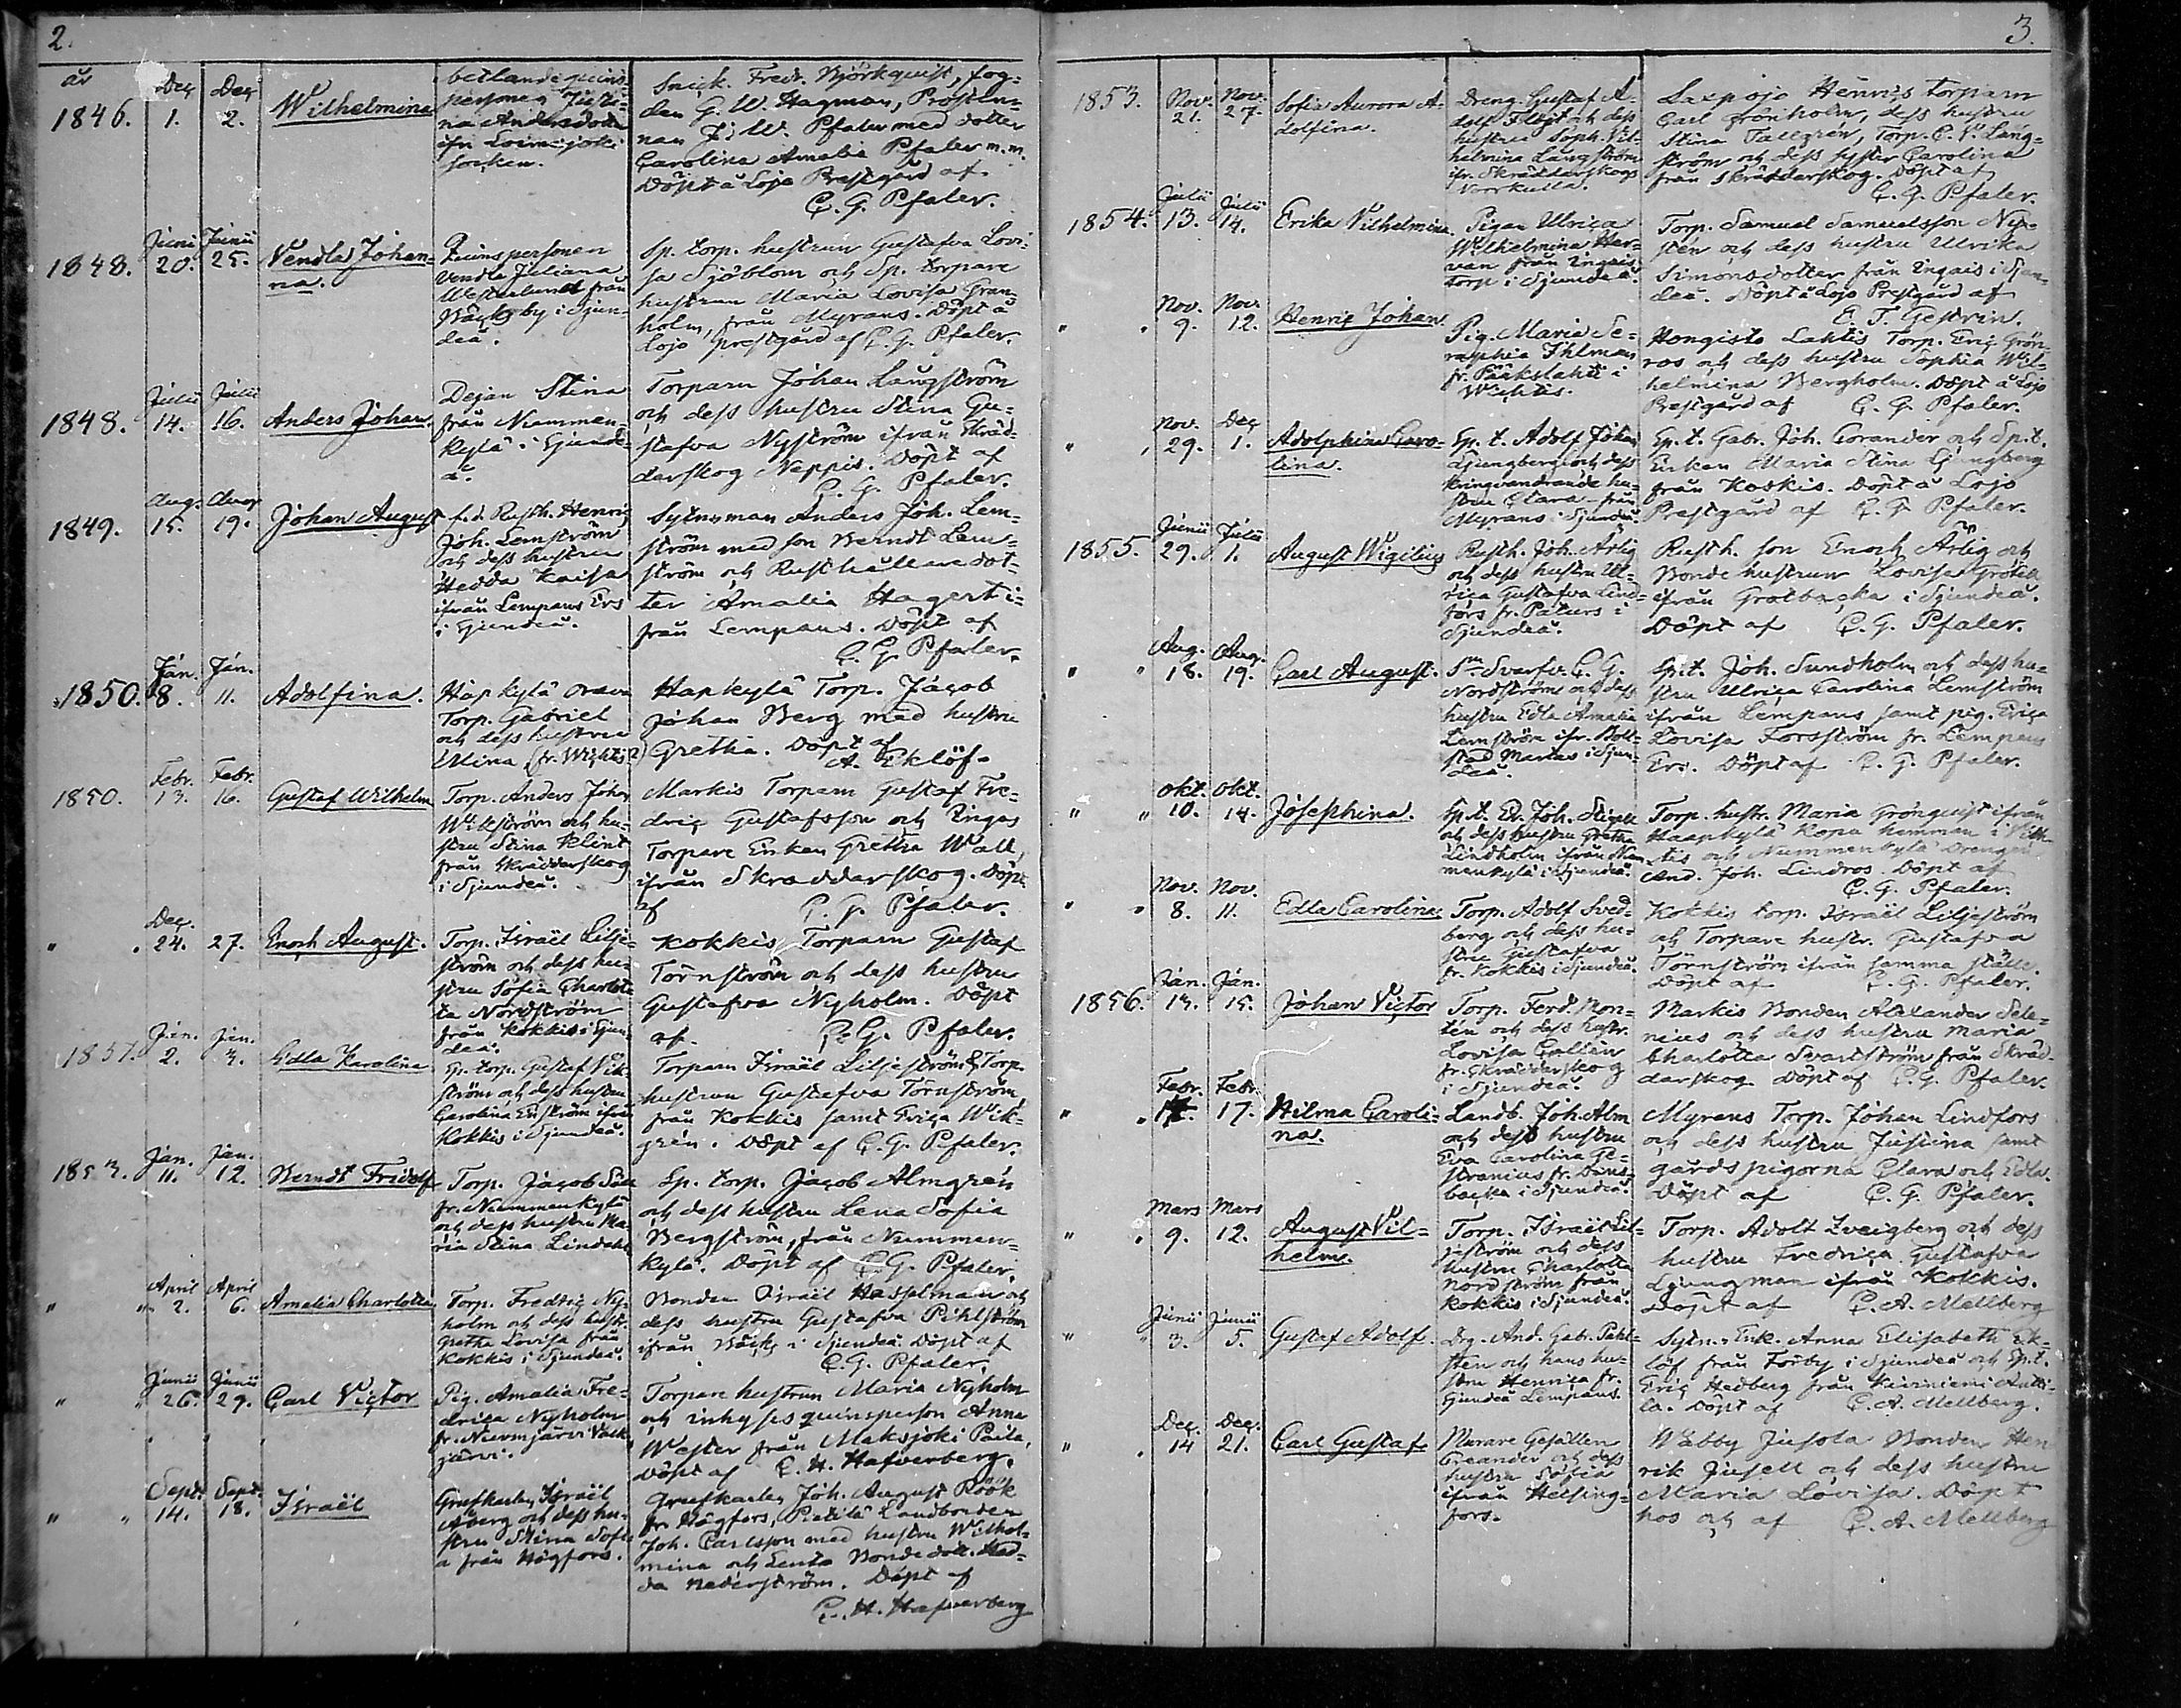 2.
år
1846. Dec. 1. Dec. 2. Wilhelmina
betlande qvins-
personen Justi-
na Andersdotter
ifr. Loimijoki
socken.
Snick. Fredr. Björkquist, fog-
den G. W. Hagman, Prostin-
nan J. W. Pfaler med dotter
Carolina Amalia Pfaler m.m.
Döpt å Lojo Prestgård af
C. G. Pfaler.
1848. Juni 20. Junii 25. Vendla Johan-
na.
Qvinspersonen
Vendla Juliana
Westerlund från
Bäcks by i Sjun-
deå.
Sp. torp. hustrun Gustafva Lovi-
sa Sjöblom och Sp. torpare
hustrun Maria Lovisa Gran-
holm, från Myrans. Döpt å
Lojo prestgård af C. G. Pfaler.
1848. Julii 14. Julii 16. Anders Johan.
Dejan Stina
från Nummen-
kylä i Sjunde-
å.
Torparen Johan Langström
och dess hustru Stina Gu-
stafva Nyström ifrån Skräd-
darskog Neppis. Döpt af
C. G. Pfaler.
1849. Aug. 15. Aug. 19. Johan August
f.d. Rusth. Henric
Joh. Lemström
och dess hustru
Hedda Kaisa
ifrån Lempans Ers
i Sjundeå.
Sytningsman Anders Joh. Lem-
ström med son Berndt Lem-
ström och Rusthållare dot-
ter Amalia Hagert i-
från Lempans. Döpt af
C. G. Pfaler.
1850. Jan. 8. Jan. 11. Adolfina.
Hapkylä Orava
Torp. Gabriel
och dess hustru
Mina (fr. Wichtis?)
Hapkylä Torp. Jacob
Johan Berg med hustru
Gretha. Döpt af
A. Eklöf.
1850. Febr. 13. Febr. 16. Gustaf Wilhelm
Torp. Anders Johan
Wikström och hu-
stru Stina Klint
från Skräddarskog
i Sjundeå.
Markis Torparn Gustaf Fre-
dric Gustafsson och Ringas
Torpare Enkan Gretha Wall,
ifrån Skräddarskog. Döpt
af C. G. Pfaler.
" " Dec. 24. 27. Enoch August.
Torp. Israël Lilje-
ström och dess hu-
stru Sofia Charlot-
ta Nordström
från Kokkis i Sjun-
deå.
Kokkis Torparn Gustaf
Törnström och dess hustru
Gustafva Nyholm. Döpt
af. C. G. Pfaler.
1851. Jan. 2. Jan. 4. Edla Karolina
Sp. torp. Gustaf Vik-
ström och dess hustru
Carolina Enström ifrån
Kokkis i Sjundeå.
Torparn Israël Liljeström & Torp.
hustrun Gustafva Törnström,
från Kokkis samt Erica Wik-
grén. Döpt af C. G. Pfaler.
1853. Jan. 11. Jan. 12. Berndt Fridolf
Torp. Jacob
fr. Nummenkylä
och dess hustru Ma-
ria Stina Lindahl
Sp. torp. Jacob Almgrén
och dess hustru Lena Sofia
Bergström, från Nummen-
kylä. Döpt af C. G. Pfaler.
" " April 2. April 6. Amalia Charlotta
Torp. Fredric Ny-
holm och dess hustr.
Gretha Lovisa från
Kokkis i Sjundeå.
Bonden Israël Hasselman och
dess hustru Gustafva Pihlström
ifrån Bäcks i Sjundeå. Döpt af
C. G. Pfaler.
" " Junii 26. Junii 29. Carl Victor
Pig. Amalia Fre-
drica Nyholm
fr. Nurmjärvi
järvi.
Torpare hustrun Maria Nyholm
och inhyses qvinsperson Anna
Wester från Maksjoki Paila,
döpt af C. H. Hafverberg.
" " Sept. 14. Sept. 18. Israël
Grufkarlen Israël
Åberg och dess hu-
stru Stina Sofi-
a från Högfors.
Grufkarlen Joh. August Röök
fr. Högfors, Pietilä Landbonden
Joh. Carlsson med hustru Wilhel-
mina och Bonde dott. Hed-
da Nederström. Döpt af
C. H. Hafverberg
3.
1853. Nov. 21. Nov. 27. Sofia Aurora A-
dolfina.
Dreng. Gustaf A-
dolf och dess
hustru Soph. Vil-
helmina Langström
ifr. Skräddarskogs
Norrkulla.
Laxpojo Henris torparn
Carl Grönholm, dess hustru
Stina Tallgrén, Torp. C. V. Lang-
ström och dess syster Carolina
från Skräddarskog. Döpt af
C. G. Pfaler.
1854. Julii 13. Julii 14. Erika Vilhelmina.
Pigan Ulrica
Wilhelmina Her-
man från Ingais
torp i Sjundeå.
Torp. Samuel Samuelsson Ny-
stén och dess hustru Ulrika
Simonsdotter från Ingais i Sjun-
deå. Döpt å Lojo Prestgård af
E. T. Gestrin.
" " Nov. 9. Nov. 12. Henric Johan
Pig. Maria Se-
raphia Ihlman
fr. Pääkslahti i
Wichtis.
Hongisto Lahtis Torp. Eric Grön-
ros och dess hustru Sophia Wil-
helmina Bergholm. Döpt å Lojo
Prestgård af C. G. Pfaler.
" " Nov. 29. Dec. 1. Adolphina Caro-
lina.
Sp. t. Adolf Johan
Ljungberg och dess
kringvandrande hu-
stru Clara från
Myrans i Sjundeå.
Sp. t. Gabr. Joh. Corander och Sp. t.
Enkan Maria Stina Ljungberg
från Koskis. Döpt å Lojo
Prestgård af C. G. Pfaler.
1855. Junii 29. Julii 1. August Wigilius
Rusth. Joh. Ärlig
och dess hustru Ul-
rica Gustafva Lind-
fors fr. Paturs i
Sjundeå.
Rusth. son Enoch Ärlig och
Bonde hustrun Lovisa Grotell
ifrån Grotbacka i Sjundeå.
Döpt af C. G. Pfaler.
" " Aug. 18. Aug. 19. Carl August.
Sm. Svarfv. C. G.
Nordström och dess
hustru Edla Amalia
Lemström ifr. Bolt-
stad Martas i Sjun-
deå.
Sp. t. Joh. Sundholm och dess hu-
stru Ulrica Carolina Lemström
ifrån Lempans samt pig. Erica
Lovisa Forsström fr. Lempans
Ers. Döpt af C. G. Pfaler.
" " Okt. 10. Okt. 14. Josephina.
Sp. t. Joh. Stigell
och dess hustru Gretha
Lindholm ifrån Num-
menkylä i Sjundeå.
Torp. hustr. Maria Grönquist ifrån
Haapkylä Kopa hemman i Vich-
tis och Nummenkylä Drengen
And. Joh. Lindros. Döpt af
C. G. Pfaler.
" " Nov. 8. Nov. 11. Edla Carolina
Torp. Adolf Sved-
berg och dess hu-
stru Gustafva
fr. Kokkis i Sjundeå.
Kokkis torp. Israël Liljeström
och Torpare hustr. Gustafva
Törnström ifrån samma ställe.
Döpt af C. G. Pfaler.
1856. Jan. 13. Jan. 15. Johan Victor
Torp. Ferd. Mon-
tén och dess hustr.
Lovisa Gallén
fr. Skräddarskog
i Sjundeå.
Markis Bonden Alexander Sele-
nius och dess hustru Maria
Charlotta Svartström från Skräd-
darskog. Döpt af C. G. Pfaler.
" " Febr. Febr. 17. Hilma Caroli-
na.
Landb. Joh. Alm
och dess hustru
Eva Carolina Ge-
stranius fr. Däns-
backa i Sjundeå.
Myrans Torp. Johan Lindfors
och dess hustru Justina samt
gårdspigorna Clara och Edla.
Döpt af C. G. Pfaler.
" " Mars 9. Mars 12. August Vil-
helm.
Torp. Israël Lil-
jeström och dess
hustru Charlotta
Nordström från
Kokkis i Sjundeå.
Torp. Adolf Zveigberg och dess
hustru Fredrica Gustafva
Ljungman ifrån Kokkis.
Döpt af C. A. Mellberg
" " Junii 3. Junii 5. Gustaf Adolf.
Drg. And. Gabr. Pahl-
sten och hans hu-
stru Henrica fr.
Sjundeå Lempans.
Sytn. Enk. Anna Elisabeth Ek-
löf från Förby i Sjundeå och Sp. t.
Eric Hedberg från Kiviniemi Antti-
la. Döpt af C. A. Mellberg.
" " Dec. 14 Dec. 21. Carl Gustaf
Murare Gesällen
Creander och dess
hustru Sofia
ifrån Helsing-
fors.
Wabby Jusola Bonden Hen-
rik Jusell och dess hustru
Maria Lovisa. Döpt
hos och af C. A. Mellberg